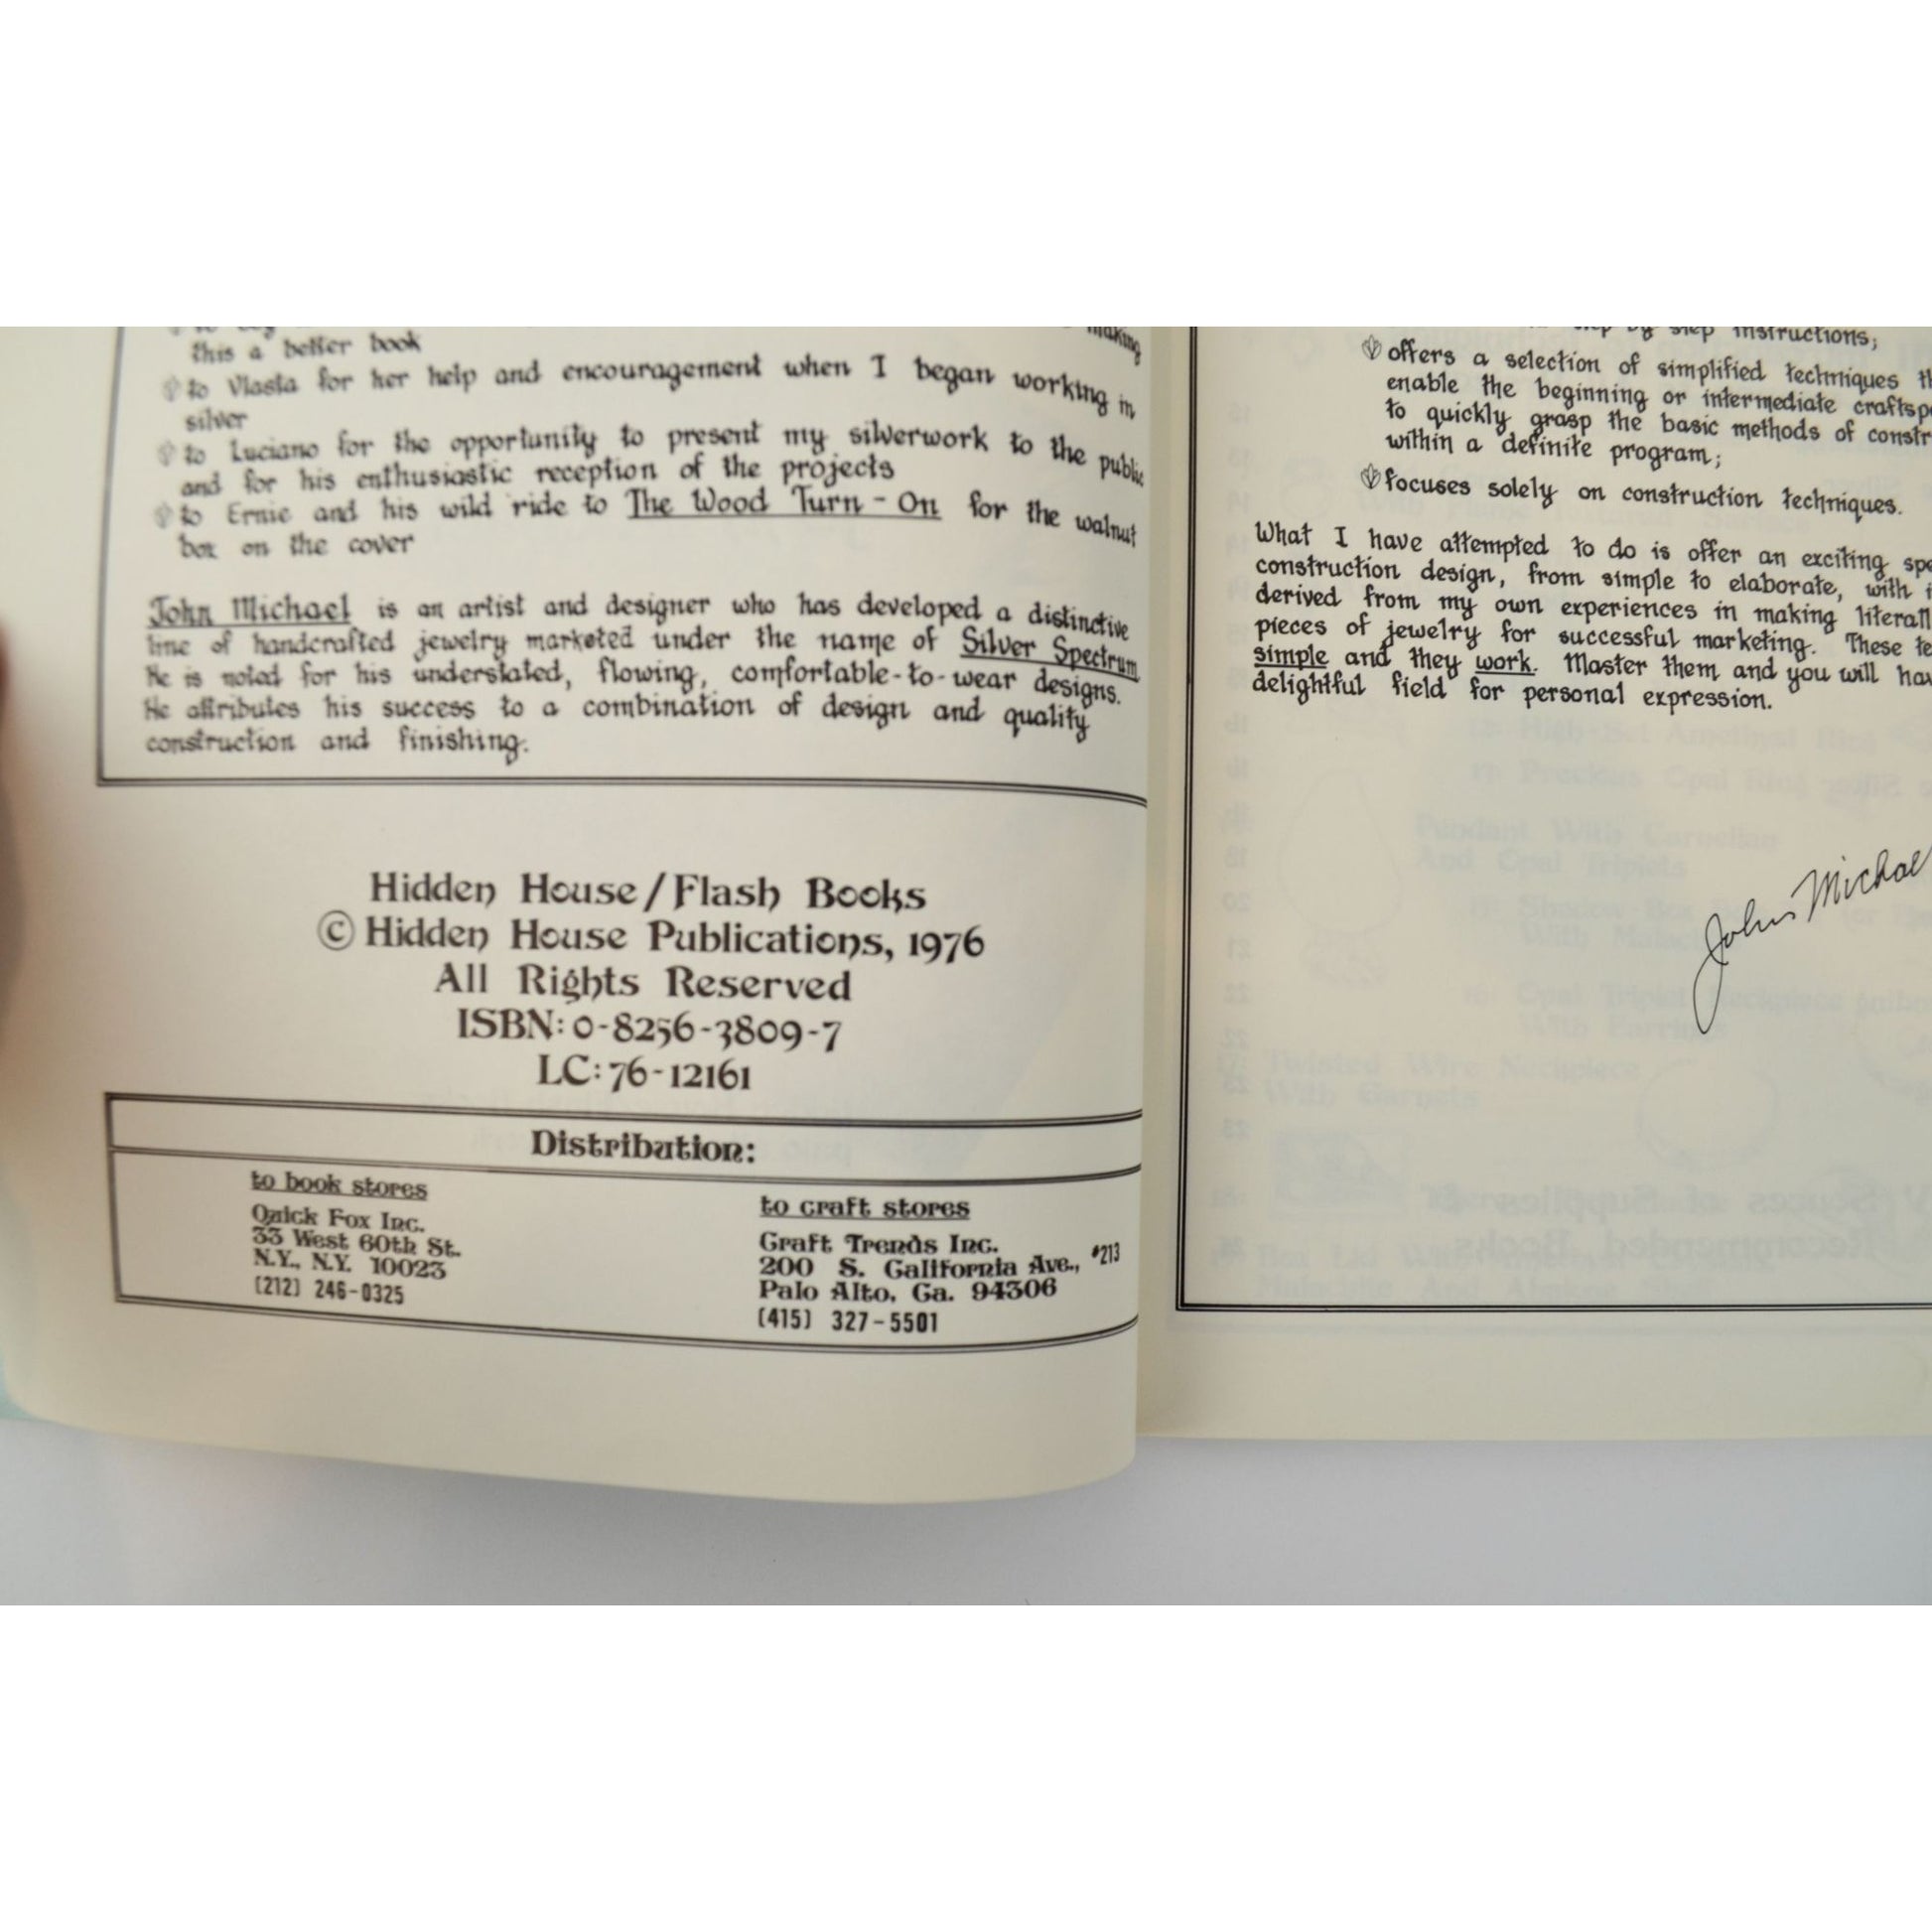 making
this a better book
to Vlasta for her help and encouragement when I began working in
silver
to Luciano for the opportunity to present my silverwork to the public
and for his enthusiastic reception of the projects
to Ernie and his wild ride to The Wood Turn-On for the walnut
box on the cover
John Michael is an artist and designer who has developed a distinctive
line of handcrafted jewelry marketed under the name of Silver Spectrum
He is noted for his understated, flowing, comfortable-to-wear designs.
He attributes his success to a combination of design and quality
construction and finishing.
Hidden House/Flash Books
© Hidden House Publications, 1976
All Rights Reserved
ISBN: 0-8256-3809-7
LC: 76-12161
Distribution:
to book stores
Quick Fox Inc.
33 West 60th St.
N.Y., N.Y. 10023
(212) 246-0325
to craft stores
Craft Trends Inc.
200 S. California Ave., #213
Palo Alto, Ca. 94306
(415) 327-5501
step by step instructions;
offers a selection of simplified techniques th
enable the beginning or intermediate craftspe
to quickly grasp the basic methods of constr
within a definite program;
focuses solely on construction techniques.
What I have attempted to do is offer an exciting spe
construction design, from simple to elaborate, with i
derived from my own experiences in making literall
pieces of jewelry for successful marketing. These te
simple and they work. Master them and you will hav
delightful field for personal expression.
John Michael